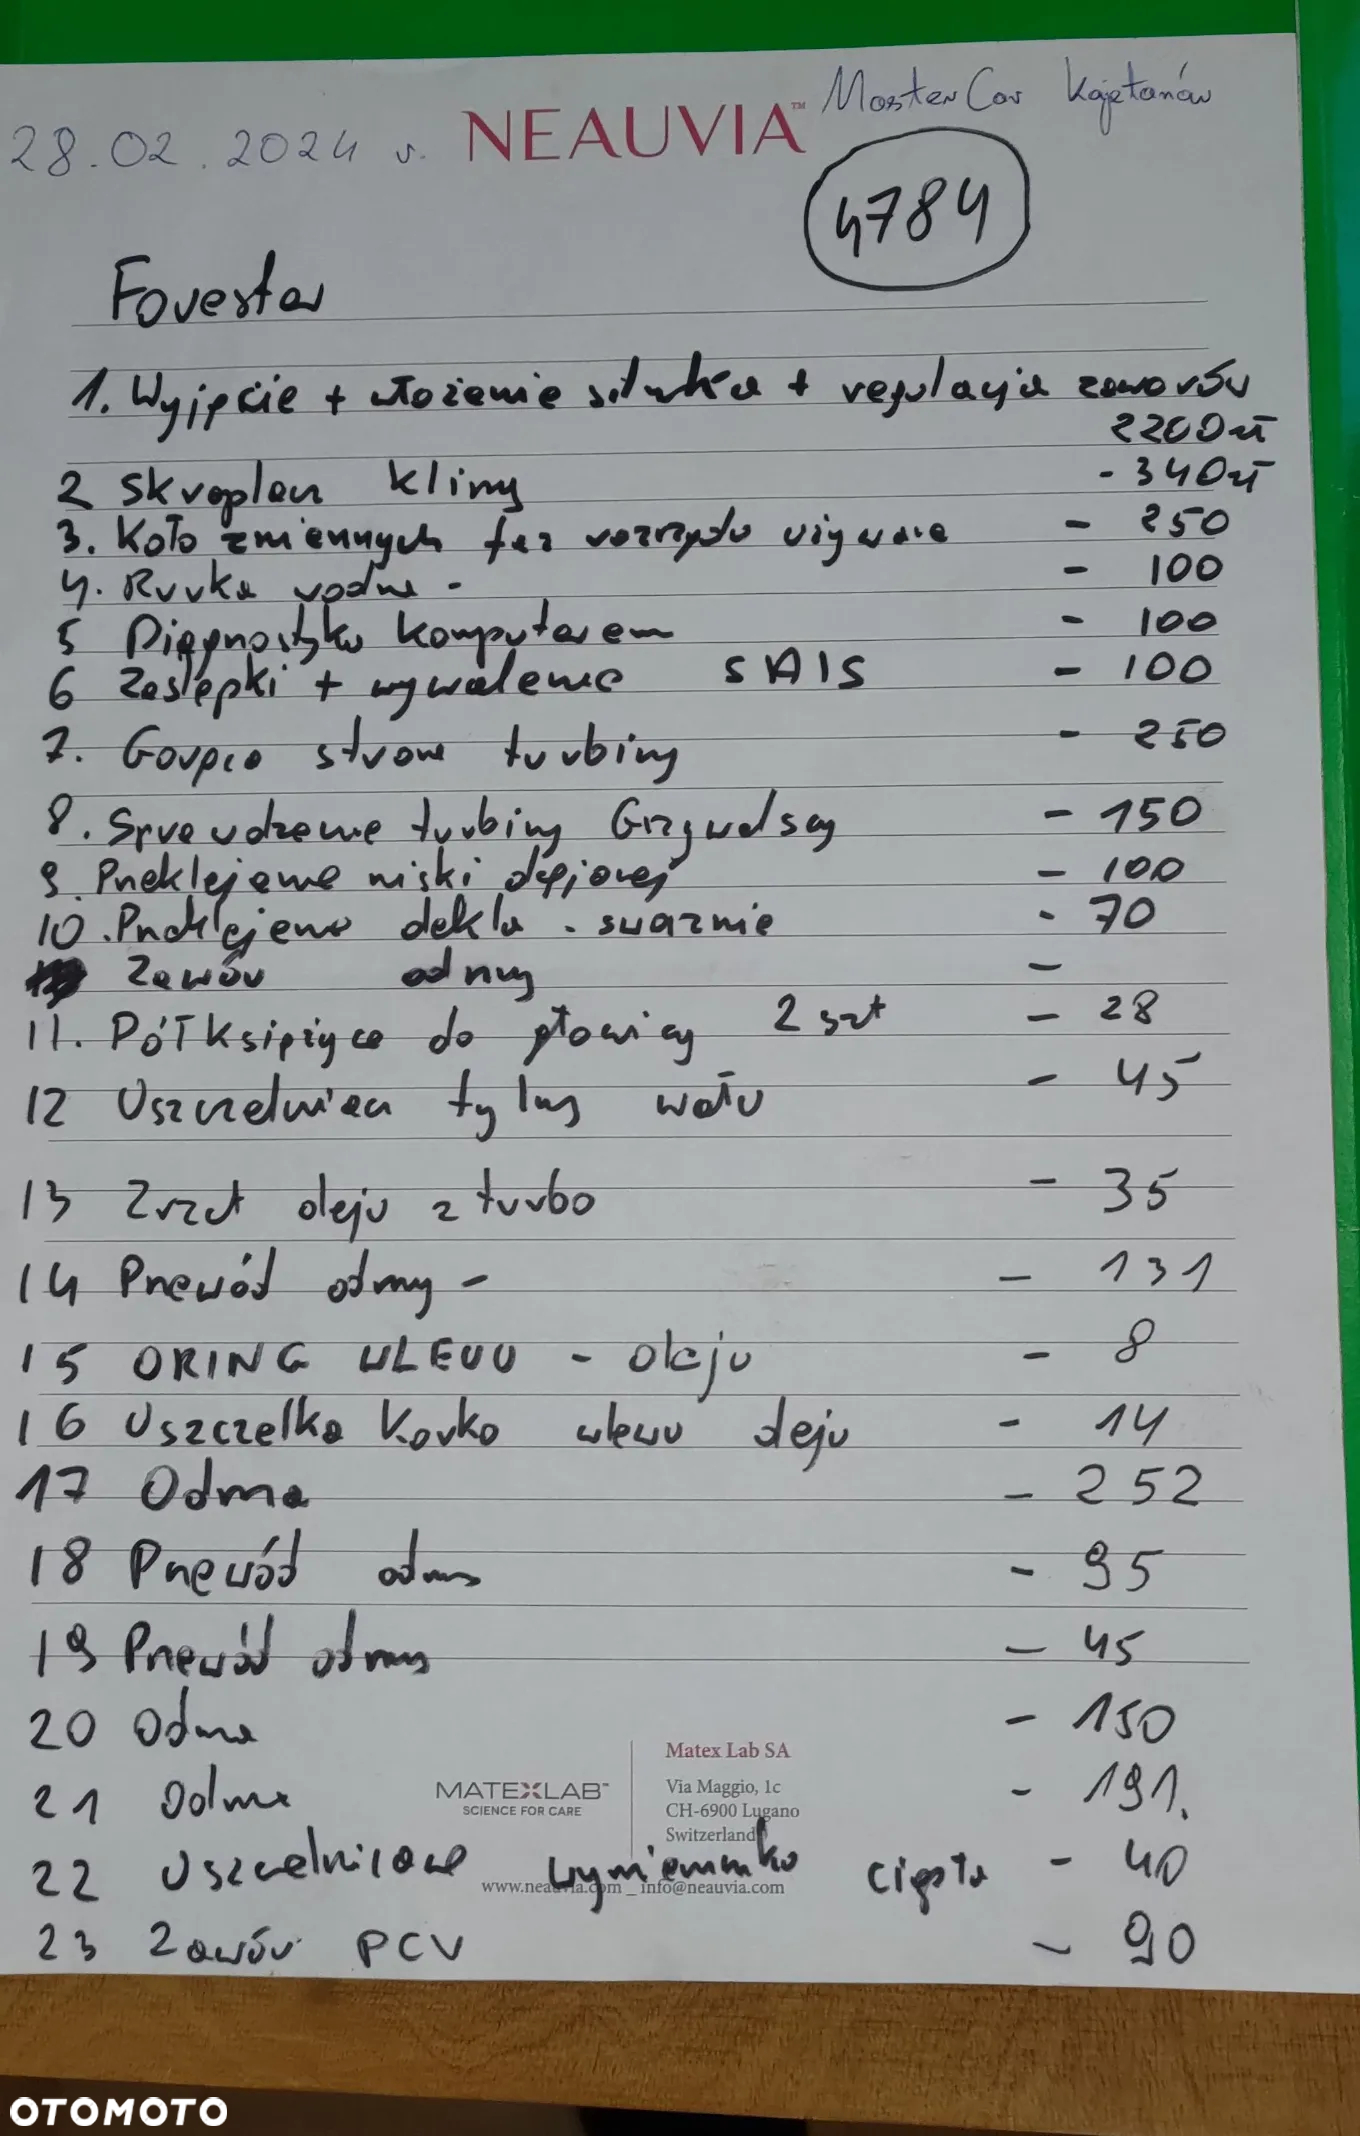 MasterCar Kajetanów
28.02.2024 r. NEAUVIA™
4784
Forester
1. Wyjęcie + włożenie silnika + regulacja zaworów
2200zł
2 Skraplacz klimy - 340zł
3. Koło zmiennych faz rozrządu używane - 250
4. Rurka wodna - - 100
5 Diagnostyka komputerem - 100
6 Zaślepki + wywalenie SAIS - 100
7. Gorąca strona turbiny - 250
8. Sprawdzenie turbiny - 150
9. Przeklejenie miski olejowej - 100
10. Przeklejenie dekla - - 70
Zawór odmy -
11. Półksiężyce do głowicy 2 szt - 28
12 Uszczelniacz tylny wału - 45
13 Zrzut oleju z turbo - 35
14 Przewód odmy - - 131
15 ORING WLEWU - oleju - 8
16 Uszczelka korka wlewu oleju - 14
17 Odma - 252
18 Przewód odmy - 95
19 Przewód odmy - 45
20 Odma - 150
21 Odma - 191.
22 Uszczelniacze wymiennika ciepła - 40
23 Zawór PCV - 90
MATEXLAB™
SCIENCE FOR CARE
Matex Lab SA
Via Maggio, 1c
CH-6900 Lugano
Switzerland
www.neauvia.com _ info@neauvia.com
OTOMOTO